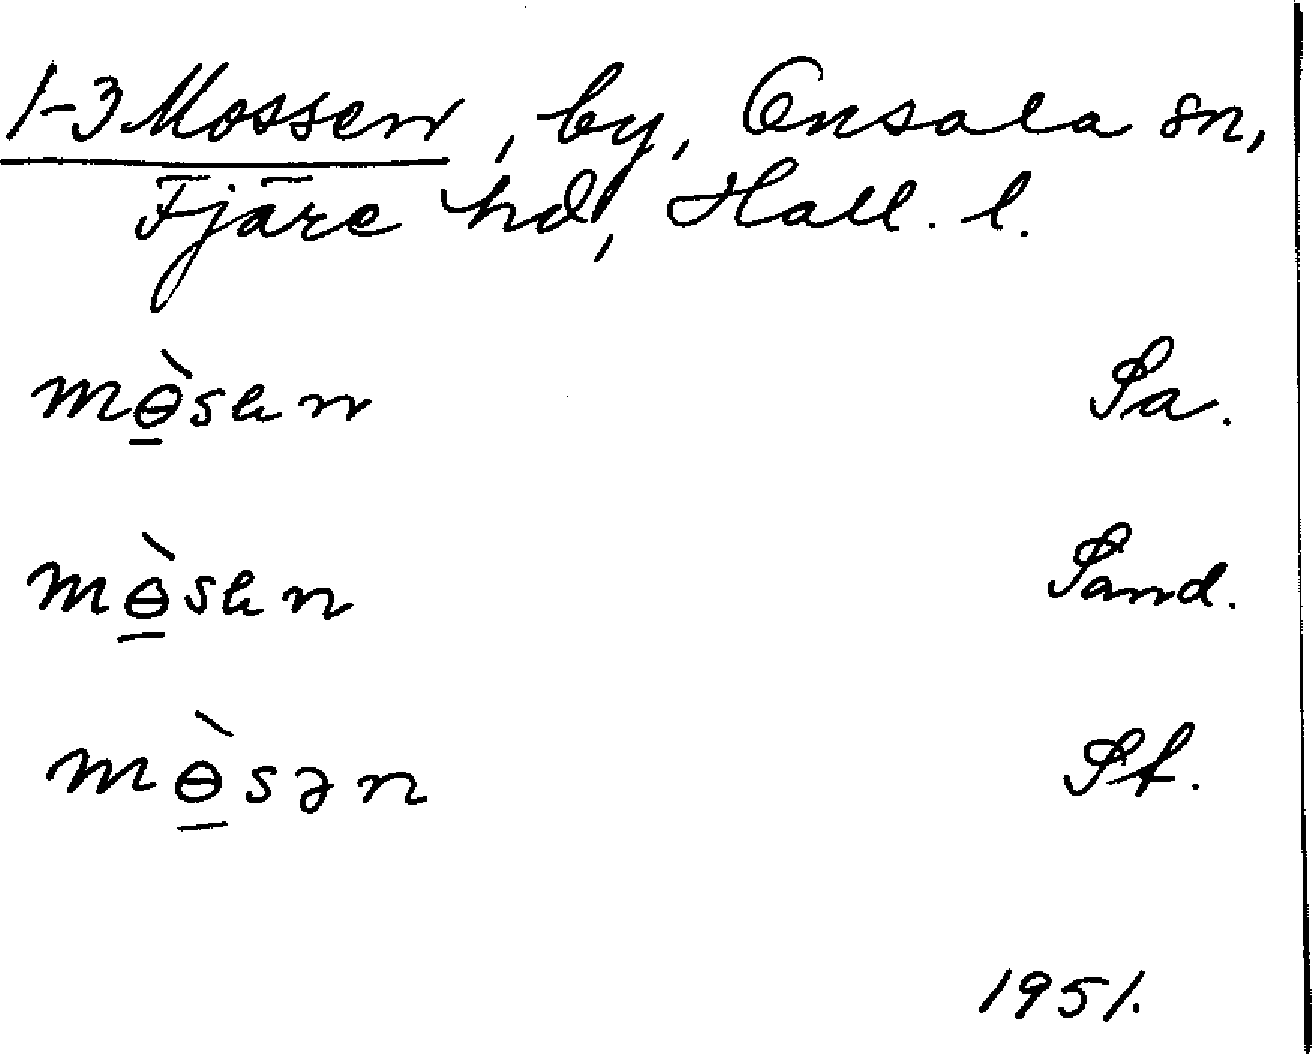 1-3 Mossen, by, Onsala sn,
Fjäre hd, Hall. l.
mɵ̲̀sɐn Sa.
mɵ̲̀sɐn Sand.
mɵ̲̀sən St.
1951.